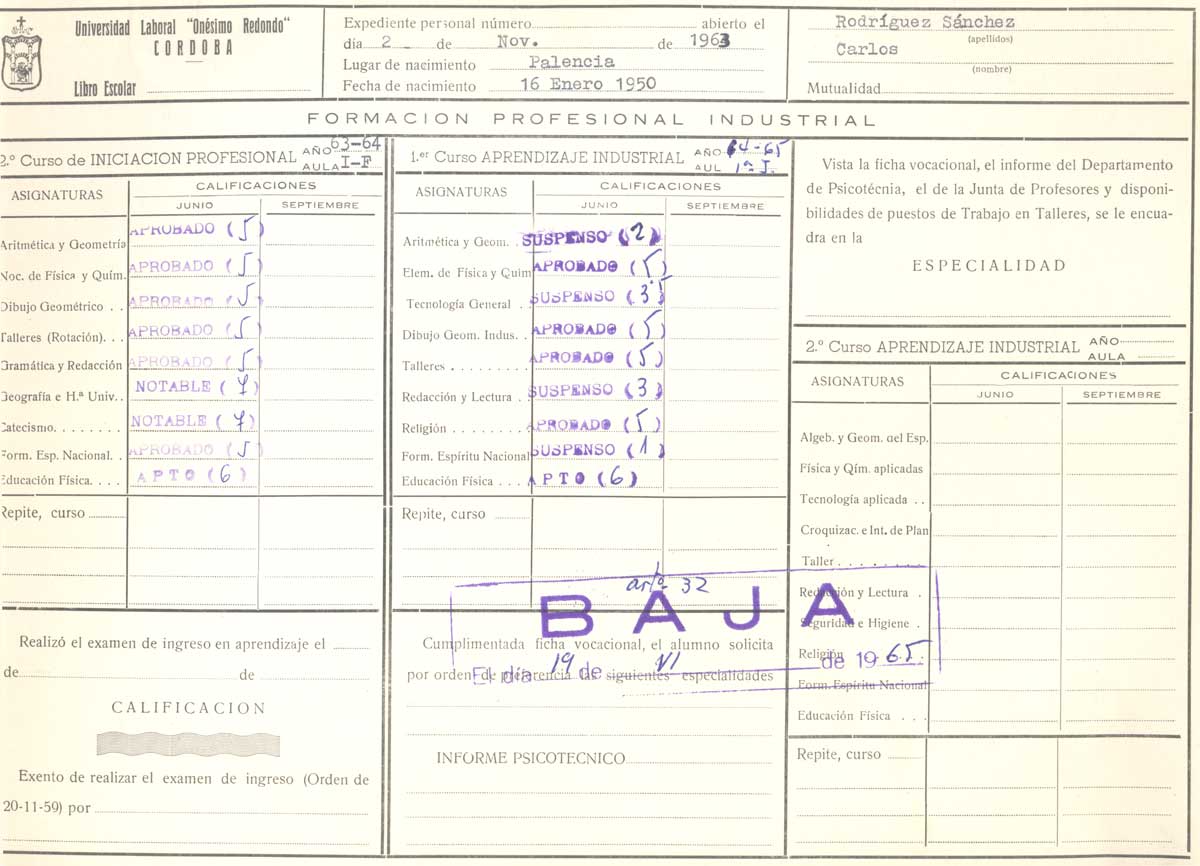 Universidad Laboral "Onésimo Redondo"
CORDOBA
Libro Escolar
Expediente personal número abierto el
día 2 de Nov. de 1963
Lugar de nacimiento Palencia
Fecha de nacimiento 16 Enero 1950
Rodríguez Sánchez
(apellidos)
Carlos
(nombre)
Mutualidad
FORMACION PROFESIONAL INDUSTRIAL
2.º Curso de INICIACION PROFESIONAL AÑO 63-64
AULA I-F
ASIGNATURAS CALIFICACIONES
JUNIO SEPTIEMBRE
Aritmética y Geometría APROBADO (5)
Noc. de Física y Quím. APROBADO (5)
Dibujo Geométrico . . APROBADO (5)
Talleres (Rotación). . . APROBADO (5)
Gramática y Redacción APROBADO (5)
Geografía e H.ª Univ. . NOTABLE (7)
Catecismo. . . . . . . NOTABLE (7)
Form. Esp. Nacional. . APROBADO (5)
Educación Física. . . . APTO (6)
Repite, curso
Realizó el examen de ingreso en aprendizaje el
de de
CALIFICACION
Exento de realizar el examen de ingreso (Orden de
20-11-59) por
1.er Curso APRENDIZAJE INDUSTRIAL AÑO 64-65
AUL 1º I.
ASIGNATURAS CALIFICACIONES
JUNIO SEPTIEMBRE
Aritmética y Geom. . SUSPENSO (2)
Elem. de Física y Quim APROBADO (5)
Tecnología General . . SUSPENSO (3)
Dibujo Geom. Indus. . APROBADO (5)
Talleres . . . . . . . APROBADO (5)
Redacción y Lectura . SUSPENSO (3)
Religión . . . . . . . . APROBADO (5)
Form. Espíritu Nacional SUSPENSO (1)
Educación Física . . . APTO (6)
Repite, curso
artº 32
BAJA
El día 19 de VI de 1965.
Cumplimentada ficha vocacional, el alumno solicita
por orden de preferencia las siguientes especialidades
INFORME PSICOTECNICO
Vista la ficha vocacional, el informe del Departamento
de Psicotécnia, el de la Junta de Profesores y disponi-
bilidades de puestos de Trabajo en Talleres, se le encua-
dra en la
ESPECIALIDAD
2.º Curso APRENDIZAJE INDUSTRIAL AÑO
AULA
ASIGNATURAS CALIFICACIONES
JUNIO SEPTIEMBRE
Algeb. y Geom. del Esp.
Física y Qím. aplicadas
Tecnología aplicada . .
Croquizac. e Int. de Plan
Taller . . . . . . . .
Redacción y Lectura .
Seguridad e Higiene .
Religión
Form. Espíritu Nacional
Educación Física . . .
Repite, curso